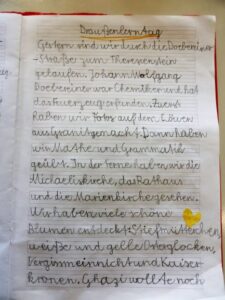 Draußenlerntag
Gestern sind wir durch die Doebereiner-
straße zum Theresienstein
gelaufen. Johann Wolfgang
Doebereiner war Chemiker und hat
das Feuerzeug erfunden. Zuerst
haben wir Fotos auf den Löwen
aus Granit gemacht. Dann haben
wir Mathe und Grammatik
geübt. In der Ferne haben wir die
Michaeliskirche, das Rathaus
und die Marienkirche gesehen.
Wir haben viele schöne
Blumen entdeckt: Stiefmütterchen,
weiße und gelbe Osterglocken,
Vergissmeinnicht und Kaiser
kronen. Ghazi wollte noch